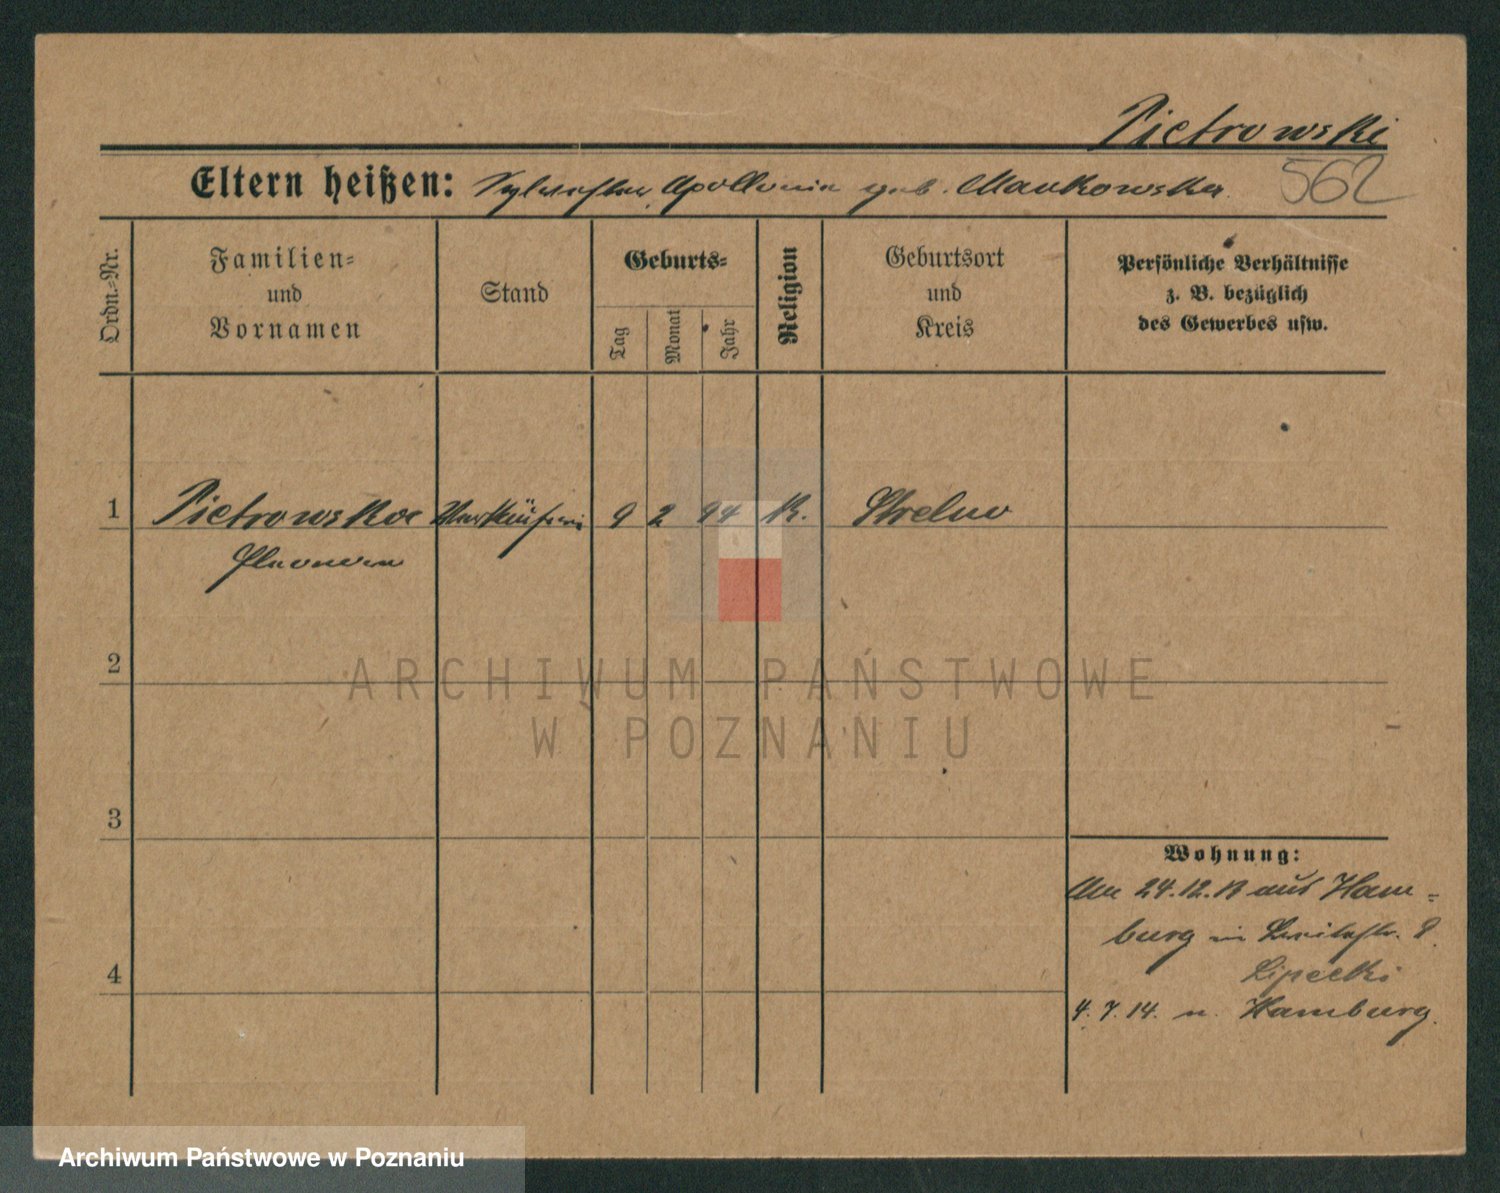 Pietrowski
Eltern heißen: Sylvester, Apollonia geb. Mankowska.
562
Ordn.-Nr.
Familien-
und
Vornamen
Stand
Geburts-
Tag
Monat
Jahr
Religion
Geburtsort
und
Kreis
Persönliche Verhältnisse
z. B. bezüglich
des Gewerbes usw.
1 Pietrowska Verkäuferin 9 2 94 K. Strelno
2
3
4
Wohnung:
Am 24.12.13 aus Ham-
burg in 8.
Lipecki
4.7.14. n. Hamburg.
ARCHIWUM PAŃSTWOWE
W POZNANIU
Archiwum Państwowe w Poznaniu